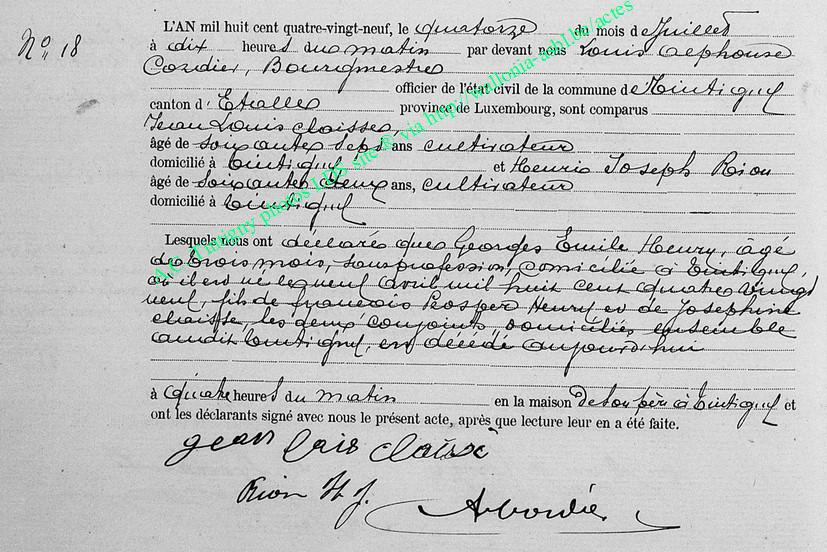 N° 18
L'AN mil huit cent quatre-vingt-neuf, le quatorze du mois de Juillet
à dix heures du matin par devant nous Louis Alphonse
Cordier, Bourgmestre
officier de l'état civil de la commune de Tintigny
canton d'Etalle province de Luxembourg, sont comparus
Jean Louis Claisse,
âgé de soixante sept ans cultivateur
domicilié à Tintigny et Henri Joseph Rion
âgé de soixante deux ans, cultivateur
domicilié à Tintigny
Lesquels nous ont déclaré que Georges Emile Henry, âgé
de trois mois, sans profession, domicilié à Tintigny,
où il est né le neuf avril mil huit cent quatre vingt
neuf, fils de François Prosper Henry et de Joséphine
Claisse, les deux conjoints, domiciliés ensemble
audit Tintigny, est décédé aujourd'hui
à quatre heures du matin en la maison de son père à Tintigny et
ont les déclarants signé avec nous le présent acte, après que lecture leur en a été faite.
jean louis claisse
Rion H J.
A Cordier
A.C. Tintigny photos LDS site ® via http://wallonia-asbl.be/actes